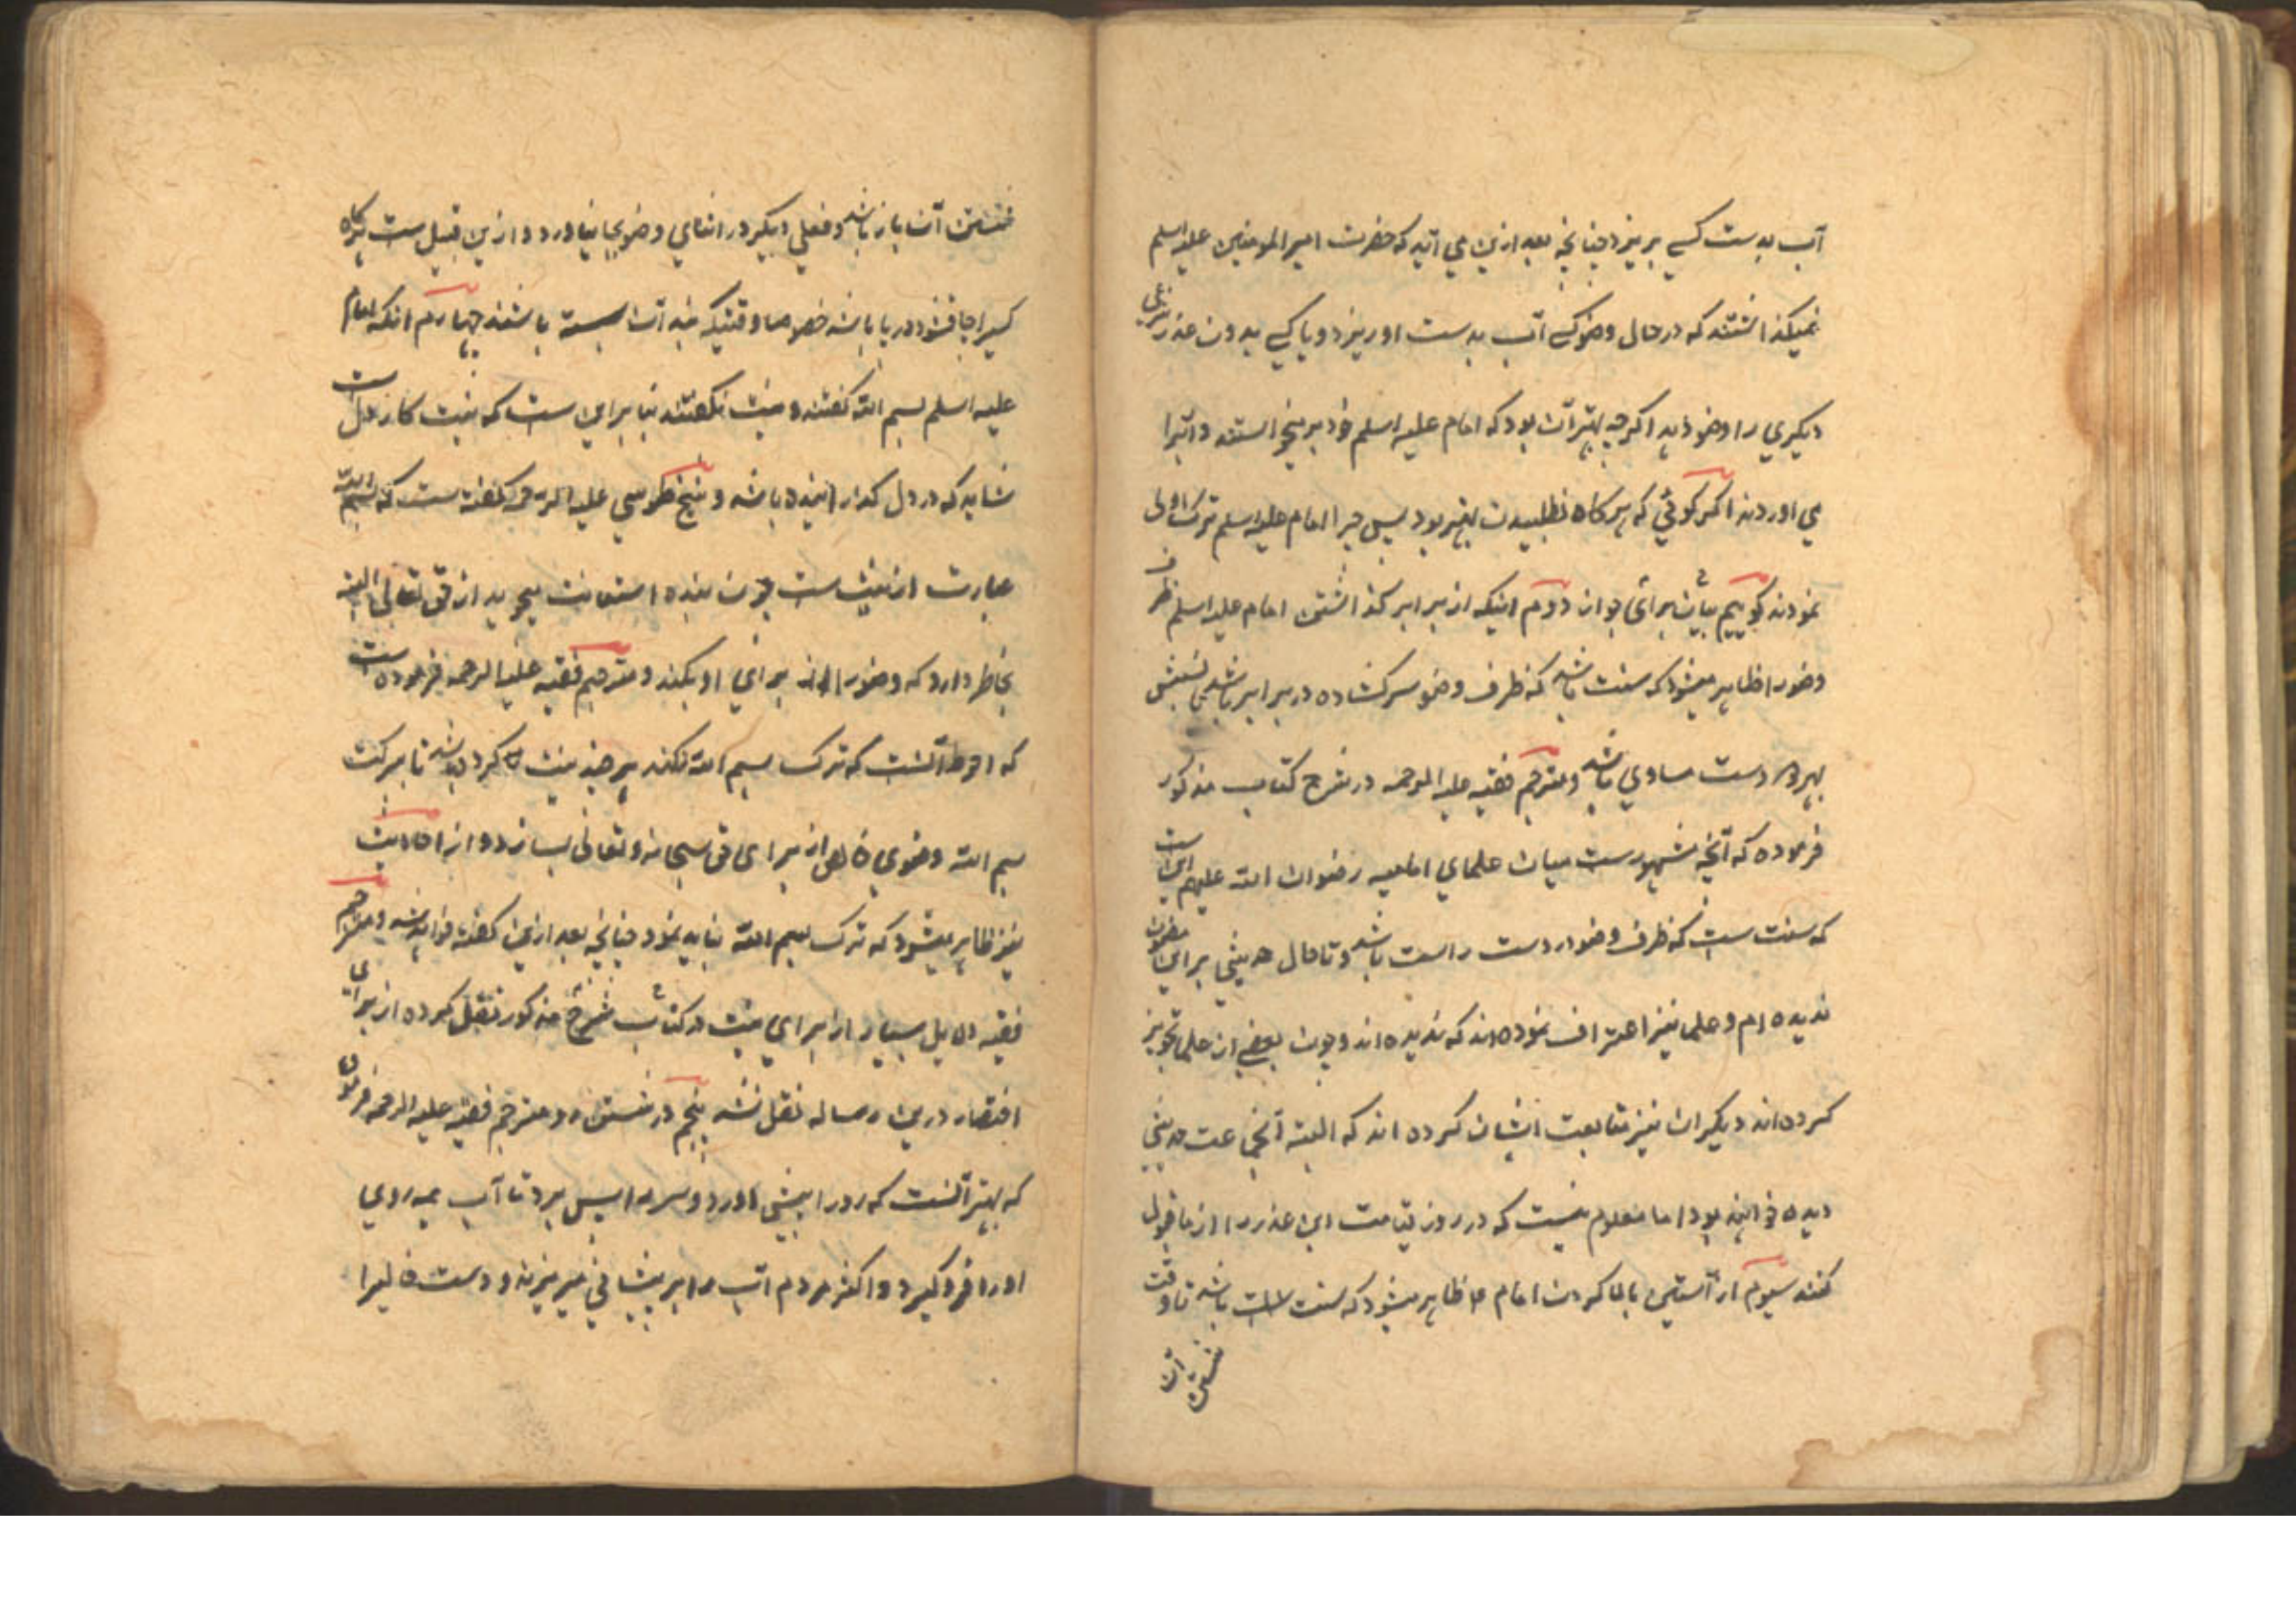 آب بدست کسی بریزد چنانچه بعد ازین می آید که حضرت امیر المومنین علیه اسلم
نمیکذاشتند که در حال وضو کسے آب بدست او ریزد و یا کسے بدون عذر شرعی
دیکری را وضو دهد اکرچه بهتر آن بود که امام علیه اسلم خود بر میخواستند و آنرا
می اوردند اکر کوئی که هرکاه نطلبیدن بهتر بود پس چرا امام علیه اسلم ترک اولی
نمودند کوییم بیان برای جواز دویم اینکه از برابر کذاشتن امام علیه اسلم ظرف
وضو را ظاهر میشود که سنت باشد که ظرف وضو سرکشاده در برابر باشد نسبتش
بهر دو دست مساوی باشد و مترجم فقیه علیه الرحمه در شرح کتاب مذکور
فرموده که آنچه مشهورست میان علمای امامیه رضوان الله علیهم این است
که سنت ست که ظرف وضو در دست راست باشد و تا حال حدیثی برای مضمون
ندیده ام و علما نیز اعتراف نموده اند که ندیده اند و چون بعضی از علما تجویز
کرده اند دیکران نیز متابعت ایشان کرده اند که البته آنجماعت حدیثی
دیده خواهند بود اما معلوم نیست که در روز قیامت این عذر را از ما قبول
کنند سیوم از آستین بالا کردن امام ء ظاهر میشود که سنت باشد تا وقت
شستن آن
شستن آن باز باشد و فعلی دیکر در اثنای وضو بجا نیاورد و ازین قبیل ست هرکاه
کسیرا چاقشور در پا باشد خصوصا وقتیکه بند آن بسته باشند چهارم انکه امام
علیه اسلم بسم الله کفتند و نیت نکفتند بنا بر این ست که نیت کار دل است
شاید که در دل کذرانیده باشد و شیخ طوسی علیه الرحمه کفته ست که بسم الله
عبارت از نیت ست چون بنده استعانت میجوید از حق تعالی البته
بخاطر دارد که وضو را از برای او بکند و مترجم فقیه علیه الرحمه فرموده ست
که احوط آنست که ترک بسم الله نکند هر چند نیت کرده باشد تا ببرکت
بسم الله وضوی خالص از برای حق سبحانه و تعالی بسازد و از احادیث
نیز ظاهر میشود که ترک بسم الله نباید نمود چنانچه بعد ازین کفته خواهد شد و مترجم
فقیه دلایل بسیار از برای نیت در کتاب شرح مذکور نقل کرده از برای
اختصار درین رساله نقل نشد پنجم در شستن رو مترجم فقیه علیه الرحمه فرموده
که بهتر آنست که رو را پیش آورد و سر را پس برد تا آب همه روی
او را فرو کیرد و اکثر مردم آب را بر پیشانی میریزند و دست خالیرا